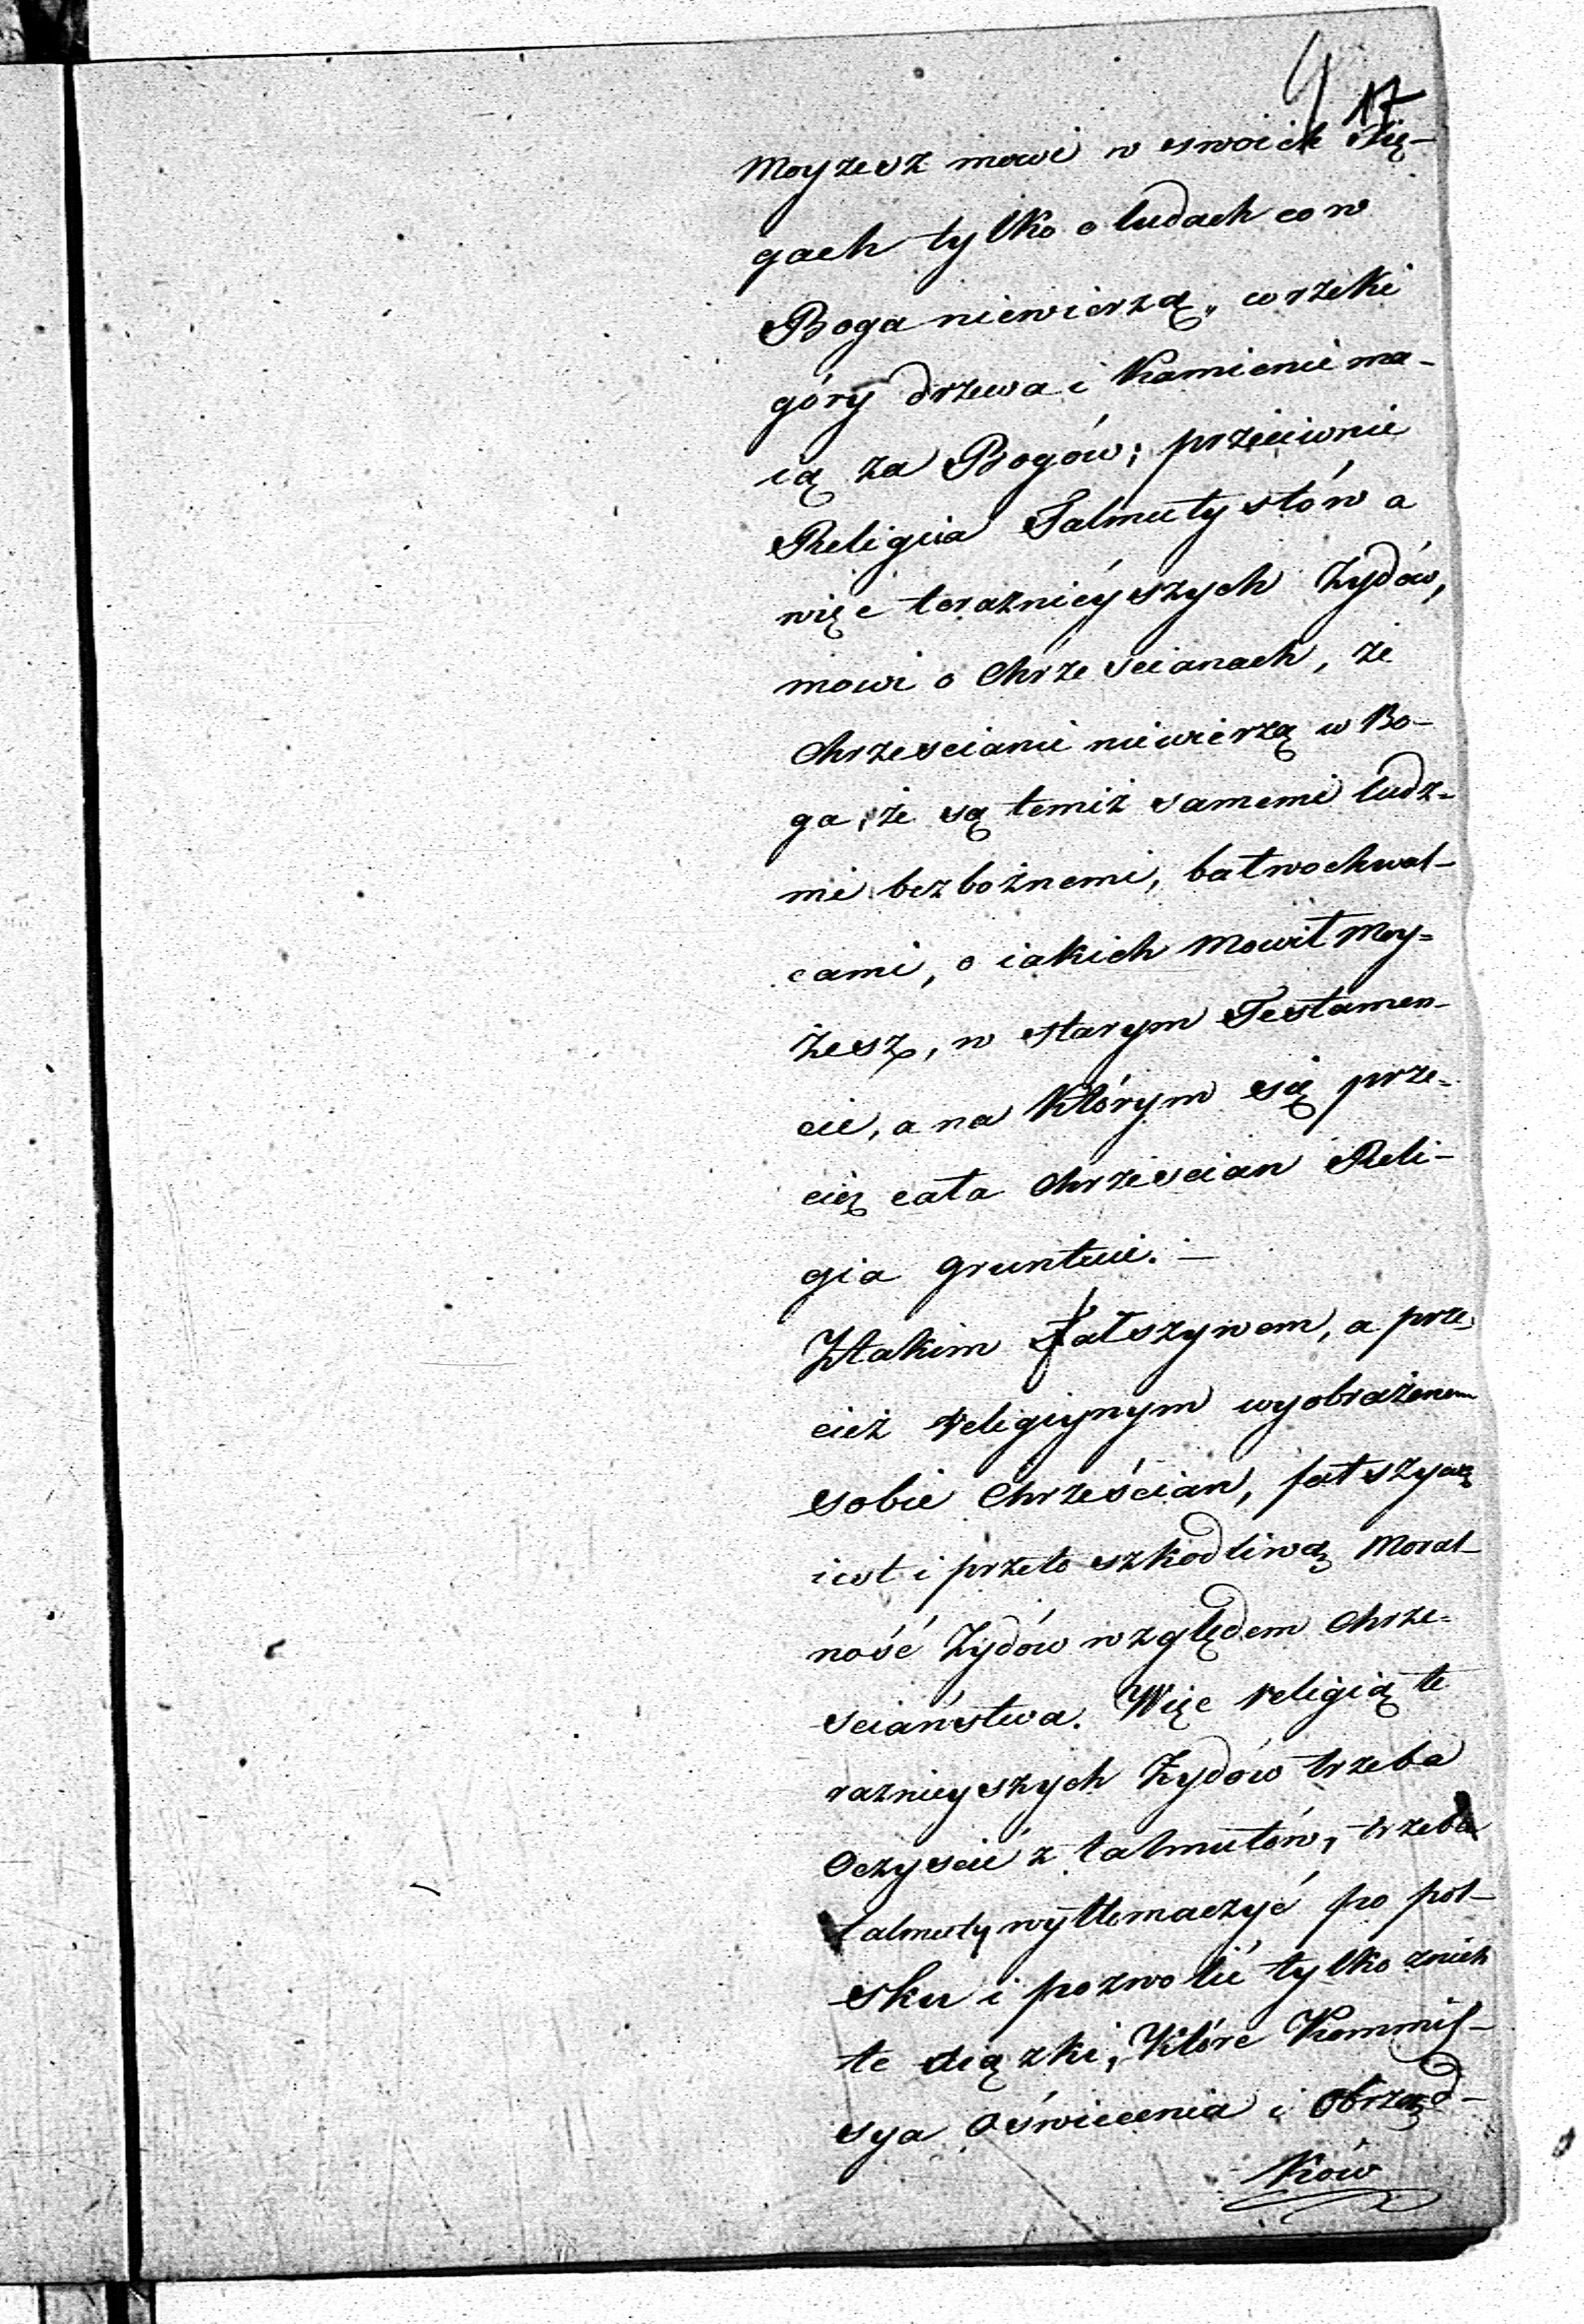 17
Moyzesz mowi w swoich Xię-
gach tylko o ludach co w
Boga niewierzą, co rzeki
góry drzewa i Kamienie ma-
ią za Bogów; przeciwnie
Religiia Talmutystów a
więc teraznieyszych Żydów,
mowi o Chrzescianach, że
Chrzescianie niewierzą w Bo-
ga, że są temiż samemi ludz-
mi bezbożnemi, bałwochwal-
cami, o iakich Mowił Moy-
żesz, w starym Testamen-
cie, a na Którym się prze-
cię cała Chrzescian Reli-
gia gruntuie. —
Z takim fałszywem, a prze-
cież religiynym wyobrażenem
sobie Chrześcian, fałszywą
iest i przeto szkodliwą Moral-
ność Żydów względem Chrze-
sciaństwa. Więc religią te
raznieyszych Żydów trzeba
Oczyscić z talmutów, trzeba
talmuty wytłomaczyć po pol-
sku i pozwolić tylko znich
te xiązki, Które Kommis-
sya Oświecenia i Obrząd-
Ków